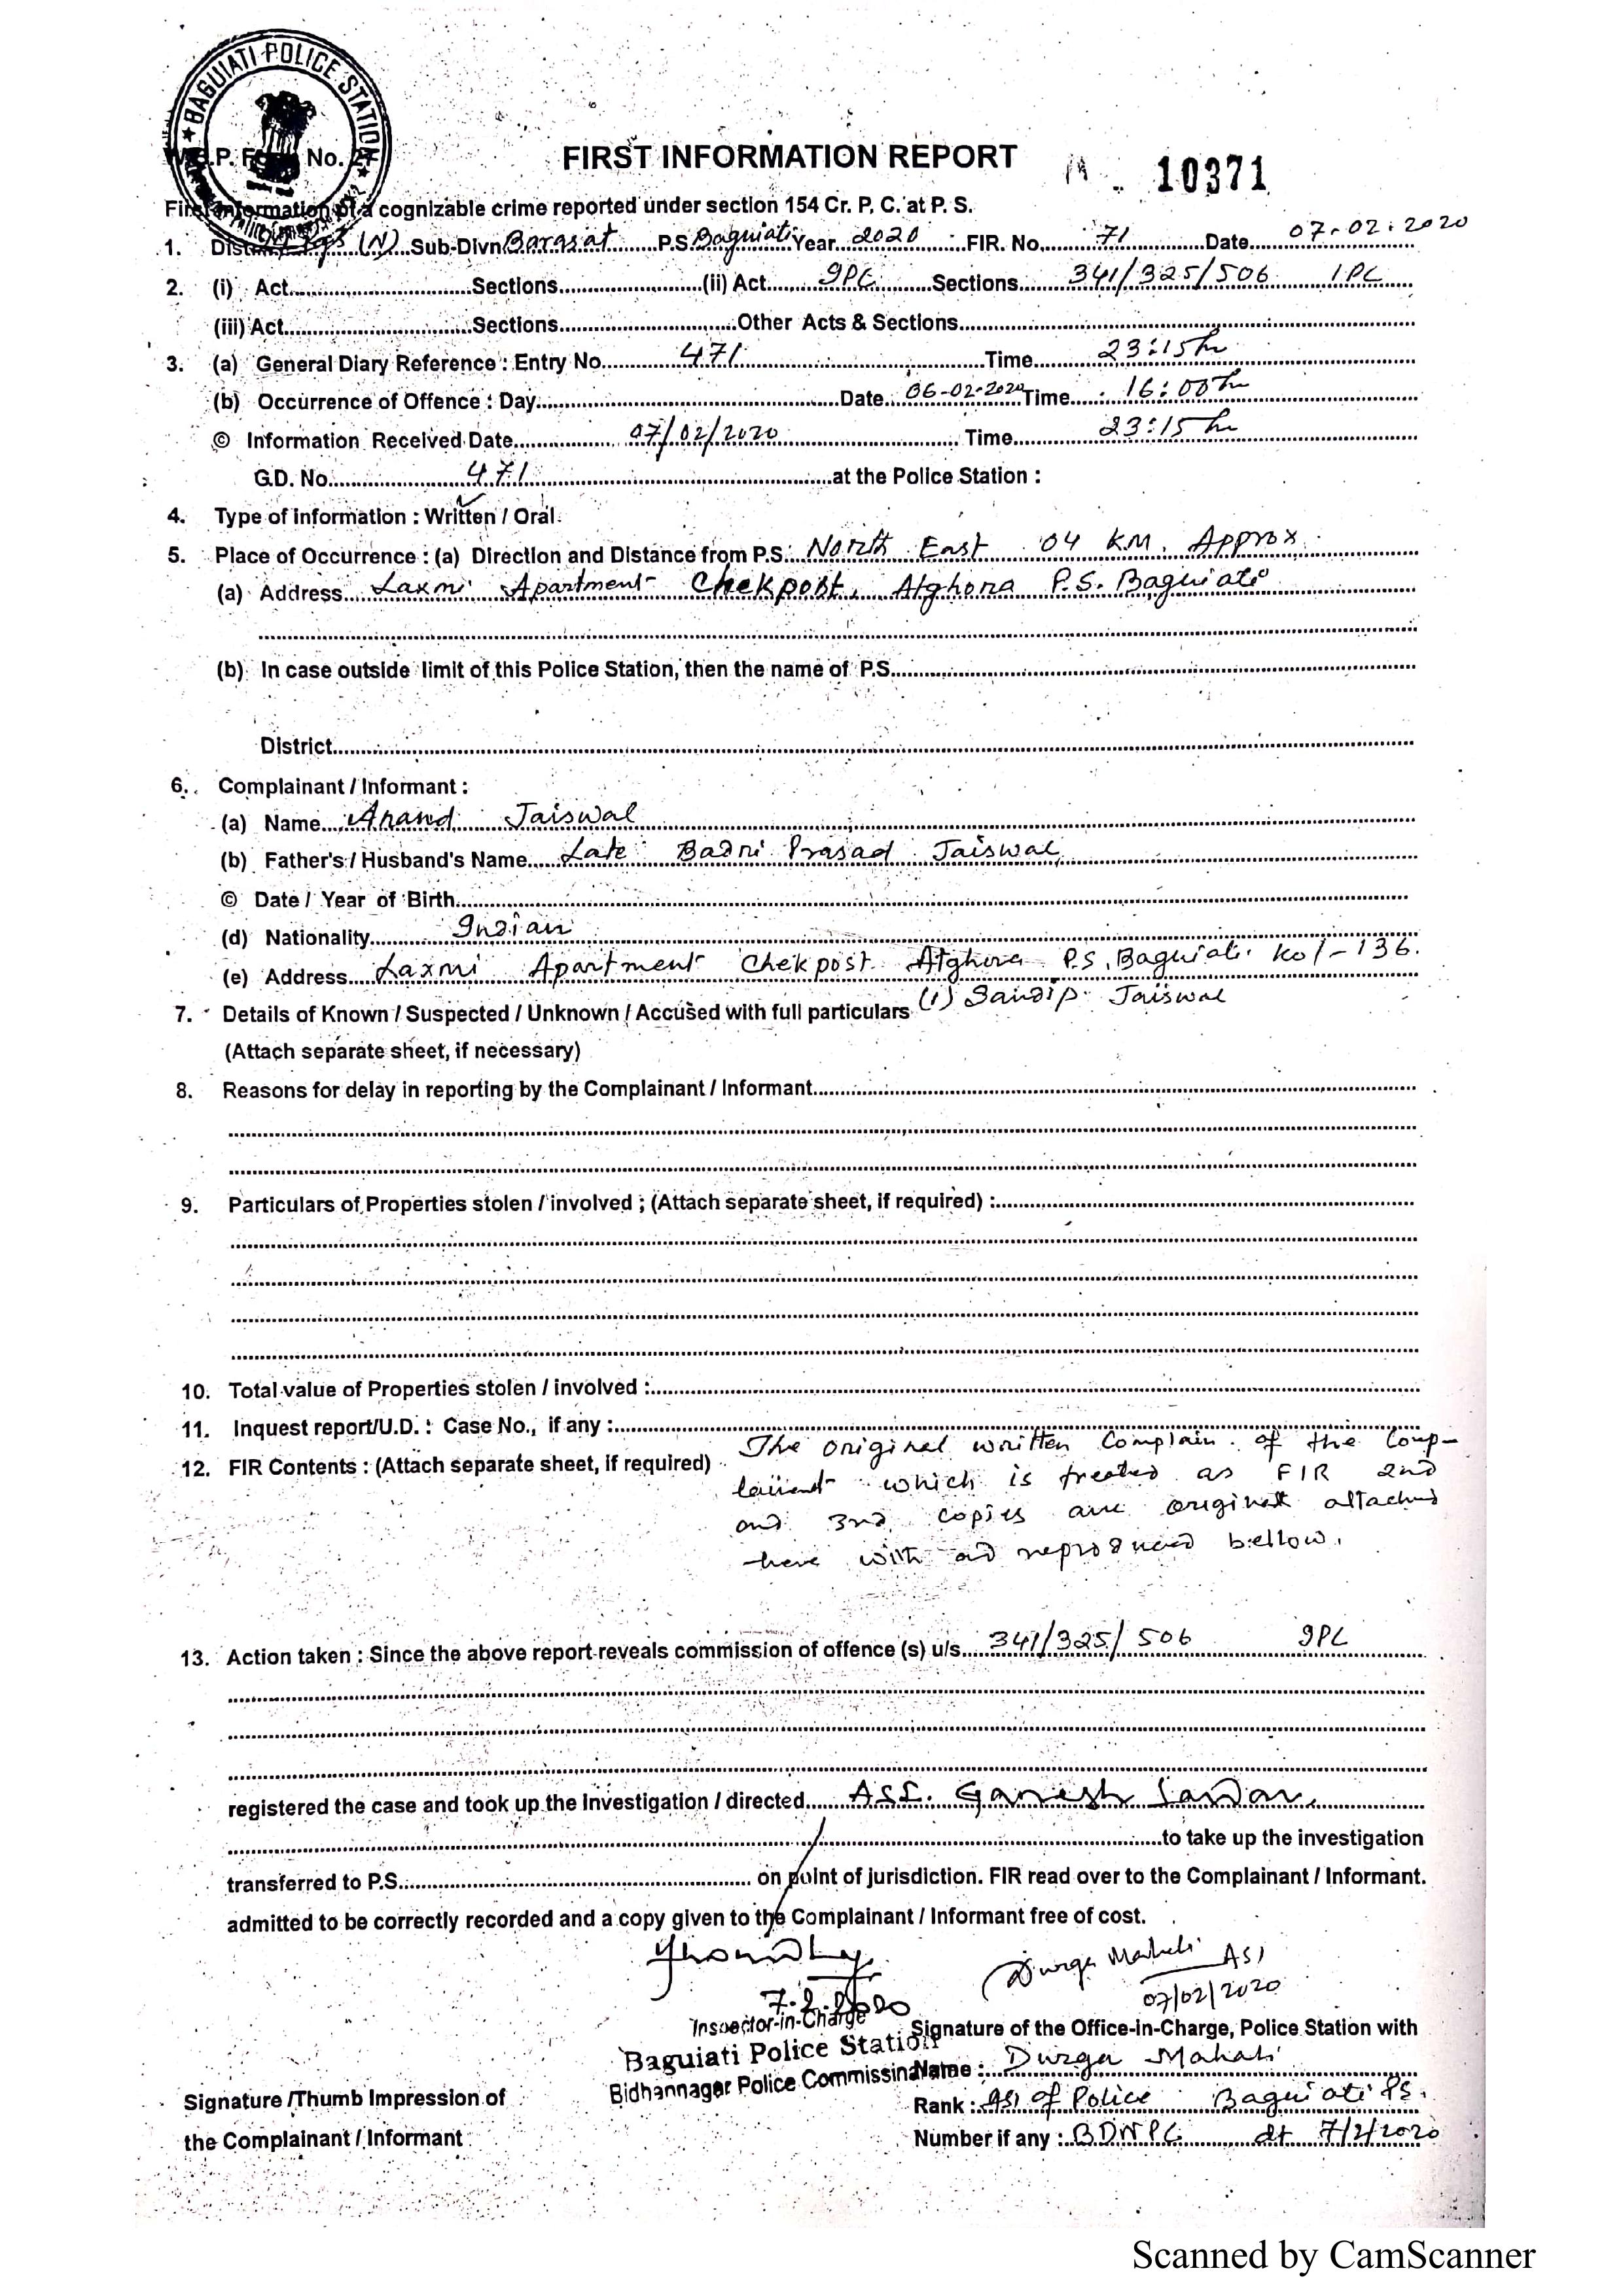 BAGUIATI POLICE STATION
W.B.P. Form No. 27
FIRST INFORMATION REPORT
10371
First Information of a cognizable crime reported under section 154 Cr. P. C. at P. S.
1. District (N) Sub-Divn Barasat P.S Baguiati Year 2020 FIR. No. 71 Date 07.02.2020
2. (i) Act Sections (ii) Act IPC Sections 341/325/506 IPC
(iii) Act Sections Other Acts & Sections
3. (a) General Diary Reference : Entry No. 471 Time 23:15 hr
(b) Occurrence of Offence : Day Date 06-02-2020 Time 16:00 hr
© Information Received Date 07/02/2020 Time 23:15 hr
G.D. No. 471 at the Police Station :
4. Type of information : Written / Oral.
5. Place of Occurrence : (a) Direction and Distance from P.S. North East 04 KM. Approx
(a) Address Laxmi Apartment Chekpost, Atghora P.S. Baguiati
(b) In case outside limit of this Police Station, then the name of P.S.
District
6. Complainant / Informant :
(a) Name Anand Jaiswal
(b) Father's / Husband's Name Late Badri Prasad Jaiswal
© Date / Year of Birth
(d) Nationality Indian
(e) Address Laxmi Apartment Chekpost Atghora P.S. Baguiati Kol-136.
7. Details of Known / Suspected / Unknown / Accused with full particulars (1) Sandip Jaiswal
(Attach separate sheet, if necessary)
8. Reasons for delay in reporting by the Complainant / Informant
9. Particulars of Properties stolen / involved ; (Attach separate sheet, if required) :
10. Total value of Properties stolen / involved :
11. Inquest report/U.D. : Case No., if any :
12. FIR Contents : (Attach separate sheet, if required) The original written Complain of the Comp-
laiant which is treated as FIR 2nd
and 3rd copies are original attached
here with ad reproduced bellow.
13. Action taken : Since the above report reveals commission of offence (s) u/s. 341/325/506 IPC
registered the case and took up the investigation / directed ASI. Ganesh Sardar
to take up the investigation
transferred to P.S. on point of jurisdiction. FIR read over to the Complainant / Informant.
admitted to be correctly recorded and a copy given to the Complainant / Informant free of cost.
Durga Mahali ASI
7.2.2020
07/02/2020
Inspector-in-Charge
Signature of the Office-in-Charge, Police Station with
Baguiati Police Station
Name : Durga Mahali
Bidhannagar Police Commissinarate
Signature /Thumb Impression of
Rank : ASI of Police Baguiati PS.
the Complainant / Informant
Number if any : BDNPC dt 7/2/2020
Scanned by CamScanner